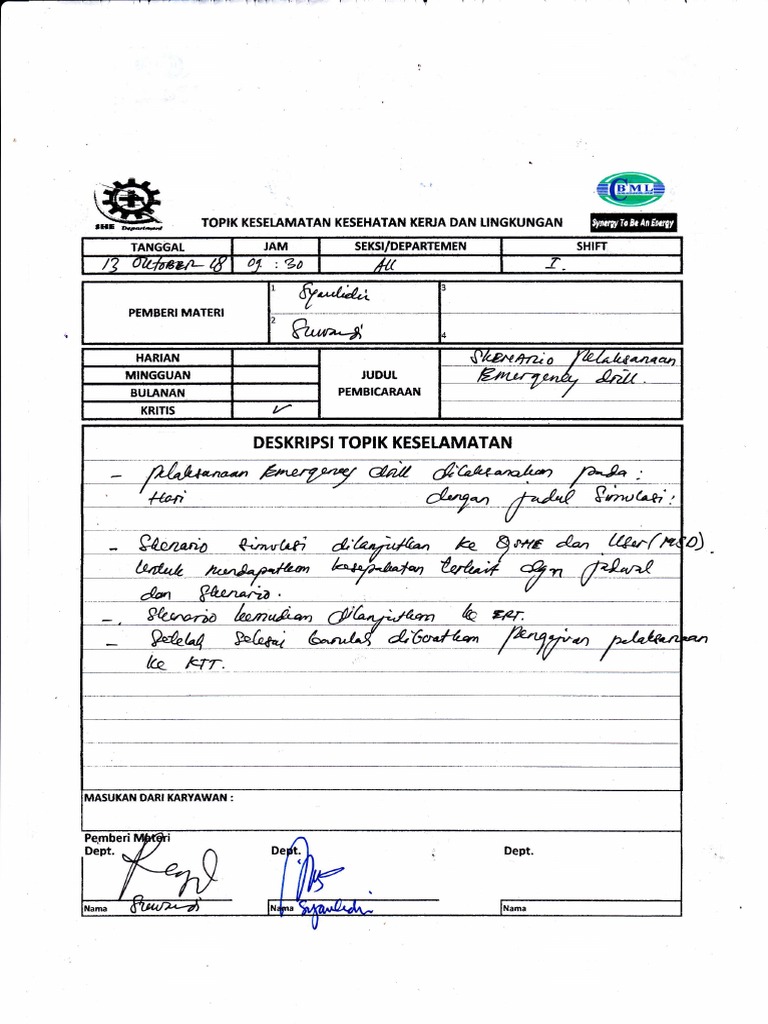 SHE Department
CBML
Synergy To Be An Energy
TOPIK KESELAMATAN KESEHATAN KERJA DAN LINGKUNGAN
TANGGAL JAM SEKSI/DEPARTEMEN SHIFT
13 OKTOBER 18 09 : 30 All I.
PEMBERI MATERI
1 Syaulidir 3
2 Suwandi 4
HARIAN
MINGGUAN
BULANAN
KRITIS ✓
JUDUL PEMBICARAAN
SKENARIO pelaksanaan
Emergency drill.
DESKRIPSI TOPIK KESELAMATAN
- pelaksanaan Emergency drill dilaksanakan pada :
Hari dengan judul Simulasi :
- Skenario simulasi dilanjutkan ke QSHE dan User (MSD)
untuk mendapatkan kesepakatan terkait dgn jadwal
dan Skenario.
-. Skenario kemudian dilanjutkan ke ERT.
- Setelah selesai barulah dibuatkan pengajuan pelaksanaan
ke KTT.
MASUKAN DARI KARYAWAN :
Pemberi Materi
Dept. Dept. Dept.
Nama Suwandi Nama Syaulidir Nama